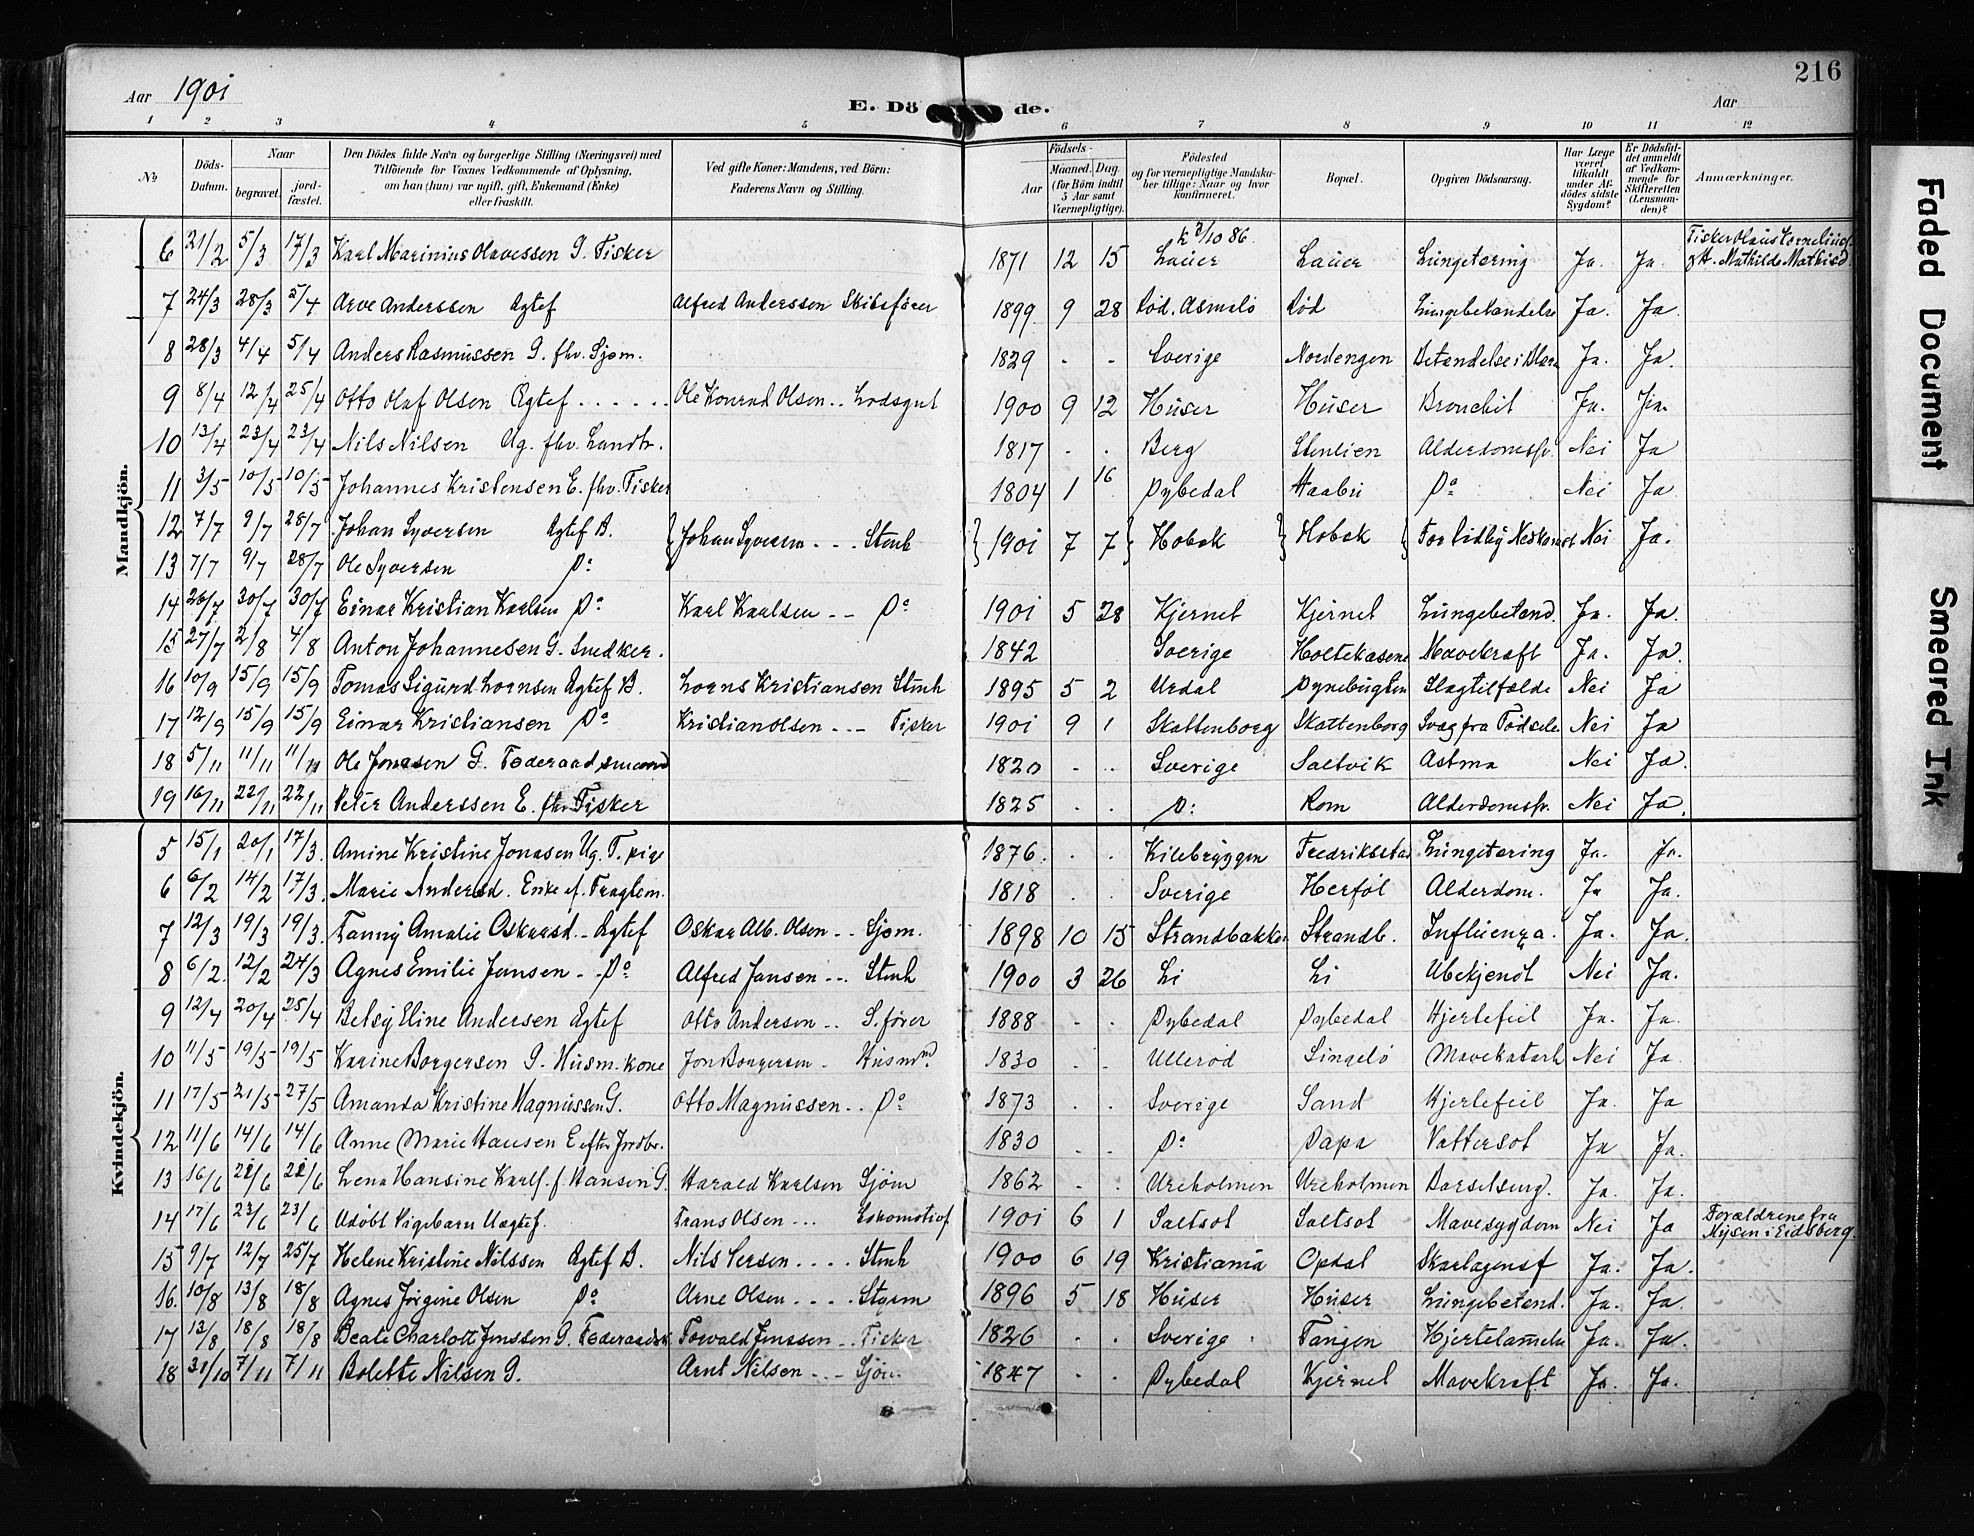 216
Aar 1901
E. Döde.
Aar
1 2 3 4 5 6 7 8 9 10 11 12
No.
Döds-Datum.
Naar
begravet.
jord-fæstet.
Den Dödes fulde Navn og borgerlige Stilling (Næringsvei) med
Tilföiende for Voxnes Vedkommende af Oplysning,
om han (hun) var ugift, gift, Enkemand (Enke)
eller fraskilt.
Ved gifte Koner: Mandens, ved Börn:
Faderens Navn og Stilling.
Födsels-
Aar
Maaned. Dag.
(for Börn indtil
5 Aar samt
Værnepligtige).
Födested
og for værnepligtige Mandska-
ber tillige: Naar og hvor
konfirmeret.
Bopæl.
Opgiven Dödsaarsag.
Har Læge
været
tilkaldt
under Af-
dödes sidste
Sygdom?
Er Dödsfal-
det anmeldt
af Vedkom-
mende for
Skifteretten
(Lensman-
den)?
Anmærkninger.
Mandkjön.
6 21/2 5/3 17/3 Karl Marinius Olavessen G. Fisker 1871 12 15 k 3/10 86. Lauer Lauer Lungetæring Ja. Ja. Fisker Olaus Corneliuss. Mathilde Mathisd.
7 24/3 28/3 5/4 Arve Anderssen Ægtef Alfred Anderssen Skibsfører 1899 9 28 Rød. Asmalø Rød Lungebetændelse Ja. Ja.
8 28/3 4/4 5/4 Anders Rasmussen G. fhv. Sjøm. 1829 - - Sverige Nordengen Betændelse i Blæra Ja. Ja.
9 8/4 12/4 25/4 Otto Olaf Olsen Ægtef Ole Konrad Olsen Lodsgut 1900 9 12 Huser Huser Bronchit Ja. Ja.
10 13/4 23/4 23/4 Nils Nilsen Ug. fhv. Landb. 1817 Berg Stenlien Alderdomssv. Nei Ja
11 3/5 10/5 10/5 Johannes Kristensen E. fhv. Fisker 1804 1 16 Dybedal Haabu Do Nei Ja
12 7/7 9/7 28/7 Johan Syversen Ægtef B. Johan Syversen Stenh 1901 7 7 Hobæk Hobæk For tidlig Nedkomst Nei Ja.
13 7/7 9/7 28/7 Ole Syversen Do
14 26/7 30/7 30/7 Einar Kristian Karlsen Do Karl Karlsen Do 1901 5 28 Kjernet Kjernet Lungebetænd. Ja. Ja.
15 27/7 2/8 4/8 Anton Johannesen G. Snedker. 1842 Sverige Holtekasene Mavekræft Ja. Ja.
16 10/9 15/9 15/9 Tomas Sigurd Lornsen Ægtef B. Lorns Kristiansen Stenh 1895 5 2 Urdal Dynebugten Slagtilfælde Nei Ja
17 12/9 15/9 15/9 Einar Kristiansen Do Kristian Olsen Fisker 1901 9 1 Skattenborg Skattenborg Svag fra Fødsele. Nei Ja
18 5/11 11/11 11/11 Ole Jonasen G. Føderaadsmand 1820 Sverige Saltvik Astma Nei Ja.
19 16/11 22/11 22/11 Peter Anderssen E. fhv. Fisker 1825 Do Rom Alderdomssv. Nei Ja.
Kvindekjön.
5 15/1 20/1 17/3. Amine Kristine Jonasen Ug. T. pige 1876. Kilebryggen Fredrikstad Lungetæring Ja. Ja.
6 6/2 14/2 17/3. Marie Andersd. Enke Fragtem. 1818 Sverige Herføl Alderdom. Ja Ja.
7 12/3 19/3 19/3. Fanny Amalie Oskarsd. Ægtef Oskar Alb. Olsen Sjøm. 1898 10 15 Strandbakken Strandb. Influenza. Ja. Ja.
8 6/2. 12/2 24/3 Agnes Emilie Jansen Do Alfred Jansen Stenh 1900 3 26 Li Li Ubekjendt Nei Ja.
9 12/4 20/4 25/4 Betsy Eline Andersen Ægtef Otto Andersen S. fører 1888 Dybedal Dybedal Hjertefeil Ja. Ja.
10 11/5 19/5 19/5 Karine Borgersen G. Husm. kone Jon Borgersen Husmd 1830 Ullerød Singelö Mavekatarh Nei Ja
11 17/5 21/5 27/5 Amanda Kristine Magnussen G. Otto Magnussen Do 1873 Sverige Sand Hjertefeil Ja. Ja
12 11/6 14/6 14/6 Anne Marie Hansen E efter Jordbr. 1830 Do Papa Vattersot Ja Ja.
13 16/6 22/6 22/6 Lena Hansine Karls. f. Hansen G. Harald Karlsen Sjøm 1862 Ureholmen Ureholmen Barselseng. Ja. Ja.
14 17/6 23/6 23/6 Udøbt Pigebarn Uægtef. Frans Olsen Lokomotivf 1901 6 1 Saltsot Saltsot Mavesygdom Nei Ja Forældrene fra Mysen i Eidsberg.
15 9/7 12/7 25/7 Helene Kristine Nilssen Ægtef B. Nils Persen Stenh 1900 6 19 Kristiania Opdal Skarlagensf Ja. Ja.
16. 10/8 13/8 18/8 Agnes Jørgine Olsen Do Arne Olsen 1896 5 18 Huser Huser Lungebetænd. Ja. Ja.
17 13/8 18/8 18/8 Beate Charlott Jenssen G. Føderaadsk Torvald Jenssen Fisker 1826 Sverige Tangen Hjertelammelse Ja. Ja.
18 31/10 7/11 7/11 Bolette Nilsen G. Arnt Nilsen Sjøm 1847 Dybedal Kjernet Mavekræft Ja. Ja.
Faded Document
Smeared Ink